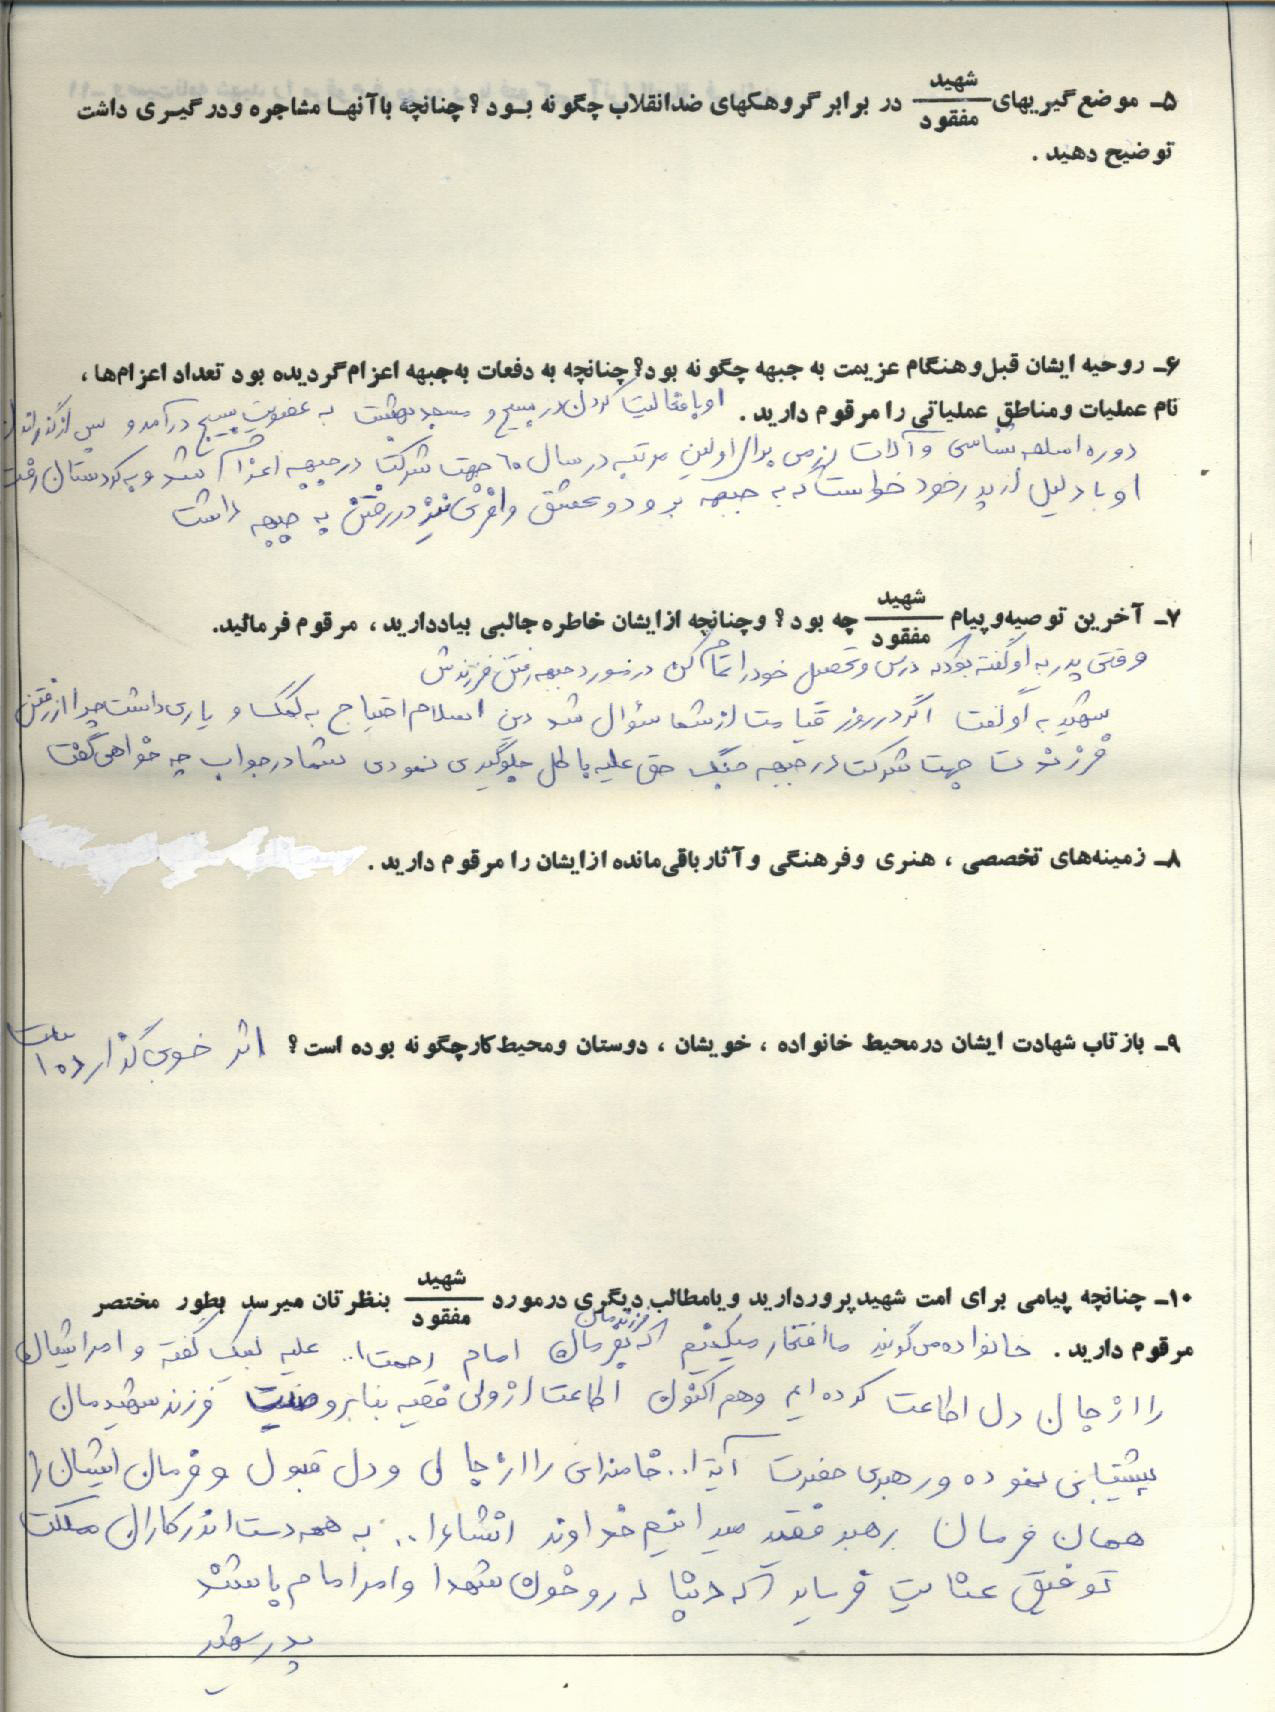 ۵ـ موضع‌گیریهای شهید/مفقود در برابر گروهکهای ضدانقلاب چگونه بود؟ چنانچه باآنها مشاجره ودرگیری داشت
توضیح دهید .
۶ـ روحیه ایشان قبل‌وهنگام عزیمت به جبهه چگونه بود؟ چنانچه به دفعات به‌جبهه اعزام‌گردیده بود تعداد اعزام‌ها ،
نام عملیات ومناطق عملیاتی را مرقوم دارید . او با فعالیت کردن در بسیج و مسجد بهشت به عضویت بسیج درآمد و پس از گذراندن
دوره اسلحه شناسی و آلات رزمی برای اولین مرتبه در سال ۶۰ جهت شرکت در جبهه اعزام شد و به کردستان رفت
او با دلیل از پدر خود خواست که به جبهه برود و عشق وافری نیز در رفتن به جبهه داشت
۷ـ آخرین توصیه‌وپیام شهید/مفقود چه بود؟ وچنانچه ازایشان خاطره جالبی بیاددارید ، مرقوم فرمائید.
وقتی پدر به او گفته بود که درس و تحصیل خود را تمام کن در مورد جبهه رفتن فرزندش
شهید به او گفت اگر در روز قیامت از شما سؤال شد دین اسلام احتیاج به کمک و یاری داشت چرا از رفتن
فرزندت جهت شرکت در جبهه جنگ حق علیه باطل جلوگیری نمودی شما در جواب چه خواهی گفت
۸ـ زمینه‌های تخصصی ، هنری وفرهنگی وآثارباقی‌مانده ازایشان را مرقوم دارید .
۹ـ بازتاب شهادت ایشان درمحیط خانواده ، خویشان ، دوستان ومحیط‌کارچگونه بوده است؟ اثر خوبی گذارده است
۱۰ـ چنانچه پیامی برای امت شهیدپروردارید ویامطالب دیگری درمورد شهید/مفقود بنظرتان میرسد بطور مختصر
مرقوم دارید . خانواده می‌گویند ما افتخار میکنیم که فرزندمان بفرمان امام رحمت ا.. علیه لبیک گفته و امر ایشان
را از جان دل اطاعت کرده ایم وهم اکنون اطاعت از ولی فقیه بنابر وصیت فرزند شهیدمان
پشتیبانی نموده و رهبری حضرت آیة ا.. خامنه‌ای را از جان و دل قبول و فرمان ایشان را
همان فرمان رهبر فقید میدانیم خداوند انشاءا.. به همه دست اندرکاران مملکت
توفیق عنایت فرماید که دنباله رو خون شهدا و امر امام باشند
پدر شهید